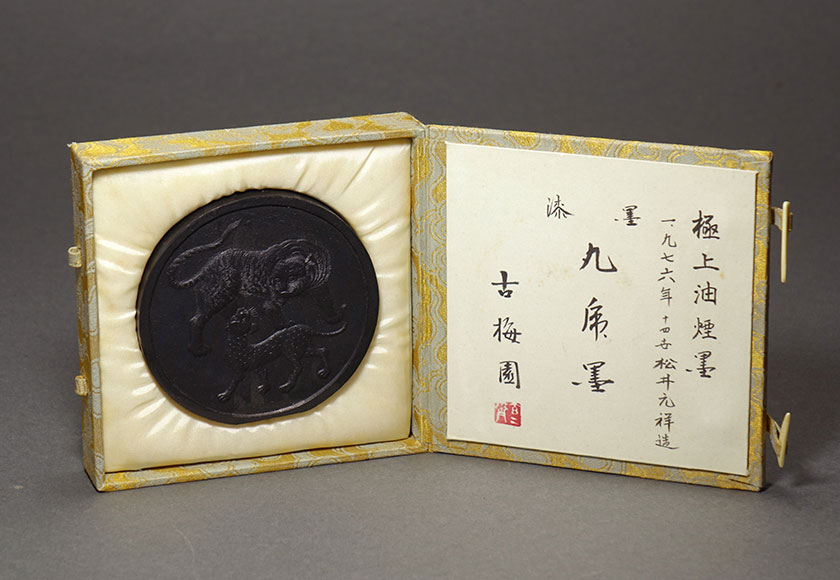 極上油煙墨
一九七六年 十四世松井元祥造
漆墨
九虎墨
古梅園